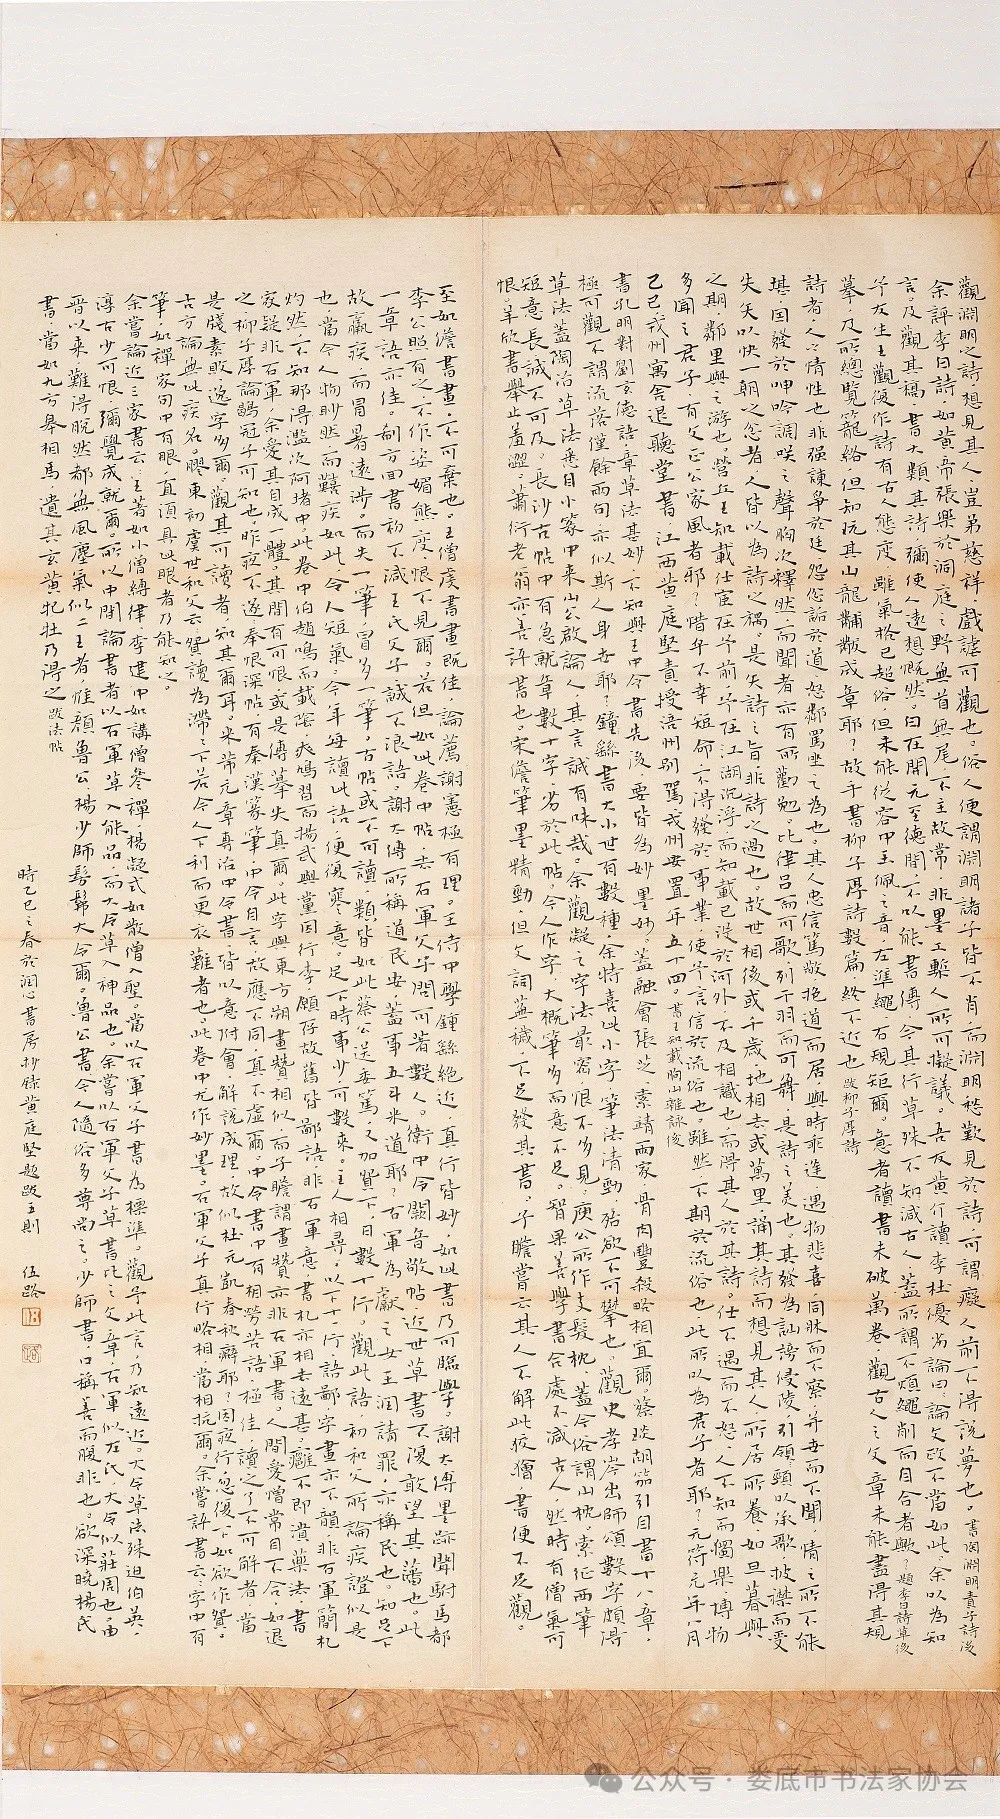 觀淵明之詩想見其人豈弟慈祥戲謔可觀也。俗人便謂淵明諸子皆不肖而淵明愁歎見於詩可謂癡人前不得說夢也。書陶淵明責子詩後
余評李白詩如黃帝張樂於洞庭之野無首無尾不主故常非墨工槧人所可擬議。吾友黃介讀李杜優劣論曰論文政不當如此余以為知
言。及觀其藁書大類其詩彌使人遠想慨然。白在開元至德間不以能書傳今其行草殊不減古人蓋所謂不煩繩削而自合者歟？題李白詩草後
予友生王觀復作詩有古人態度雖氣格已超俗但未能從容中玉佩之音左準繩右規矩爾。意者讀書未破萬卷觀古人之文章未能盡得其規
摹及所總覽籠絡但知玩其山龍黼黻成章耶？故手書柳子厚詩數篇
詩者人之情性也非强諫爭於廷怨忿詬於道怒鄰罵坐之為也。其人忠信篤敬抱道而居與時乖逢遇物悲喜同牀而不察并世而不聞情之所不能
堪因發於呻吟調咲之聲胸次釋然而聞者亦有所勸勉比律呂而可歌列干羽而可舞是詩之美也。其發為訕謗侵陵引領頸以承戈披襟而受
矢以快一朝之忿者人皆以為詩之禍是失詩之旨非詩之過也。故世相後或千歲地相去或萬里誦其詩而想見其人所居所養如旦暮與
之期鄰里與之游也。營丘王知載仕宦在予前予在江湖浮沉而知載已沒於河外不及相識也而得其人於其詩。仕不遇而不怒人不知而獨樂博物
多聞之君子有文正公家風者耶？惜乎不幸短命不得發於事業使予言信於流俗也。雖然不期於流俗也此所以為君子者耶？元符元年八月
己巳戎州寓舍退聽堂書江西黃庭堅責授涪州別駕戎州安置年五十四。書王知載朐山雜詠後
書孔明對劉玄德語章草法甚妙不知與王中令書先後要皆為妙墨妙。蓋融會張芝索靖兩家骨肉豐殺略相宜爾。蔡琰胡笳引自書十八章
極可觀不謂流落僅餘兩句亦似斯人身世耶？鍾繇書大小世有數種余特喜此小字筆法清勁殆欲不可攀也。觀史孝岑出師頌數字頗得
草法蓋陶冶草法悉自小篆中來山公啟論人其言誠有味哉。余觀凝之字法最密恨不多見。庾公所作支髮枕蓋今俗謂山枕。索征西筆
短意長誠不可及。長沙古帖中有急就章數十字劣於此帖。今人作字大概筆多而意不足。智果善學書合處不減古人然時有僧氣可
恨。羊欣書舉止羞澀。蕭衍老翁亦善評書也宋儋筆墨精勁但文詞蕪穢不足發其書。子瞻嘗云其人不解此狡獪書便不足觀。
至如儋書畫不可棄也。王僧虔書畫既佳論薦謝憲極有理。王侍中學鍾繇絕近真行皆妙如此書乃可臨學。謝太傅墨跡聞駙馬都
李公照有之不作姿媚態度恨不見爾。若但如此卷中帖去右軍父子間可著數人。衛中令闕音敬帖近世草書不復敢望其藩也。此
一章語亦佳。郗方回書初不減王氏父子誠不浪語。謝太傅所稱道民安蓋事五斗米道耶？右軍為獻之女玉潤請罪亦稱民也。知足下
故羸疾而冒暑遠涉而失一筆冒多一筆古帖或不可讀類皆如此蔡公送委篤又加廢下日數十行。觀此語初和父所論疾證似是
也當令人物眇然而艱疾如此令人短氣今年每讀此語便復寒意。足下時事少可數來主人相尋以下十一行語鄙字畫亦不韻非右軍簡札
灼然不知那得濫次阿堵中此卷中伯趙鳴而載陰爽鳩習而揚武與黨因行李願存故舊皆鄙語非右軍意書札亦相去遠甚。癰不即潰藥法書
家疑非右軍余愛其自成一體其間有可恨或是傳摹失真爾。此字與東方朔畫贊相似而子瞻謂畫贊亦非右軍書。人間愛憎常自不合如退
之柳子厚論鶡冠子可知也。昨夜不遂奉恨深帖有秦漢篆筆中令自言故應不同真不虛爾中令書中有相勞苦語極佳讀之了不可解者當
是牋素敗逸字多爾觀其可讀者知其爾耳。米芾元章專治中令書皆以意附會解說成理故似杜元凱春秋癖耶？因夜行忽復下如欲作贊
古方論無此疾名膠東初虞世和父云贊讀為滯滯下若今人下利而更衣難者也。此卷中尤作妙墨。右軍父子真行略相當相抗爾。余嘗評書云字中有
筆如禪家句中有眼直須具此眼者乃能知之。
余嘗論近三家書云王著如小僧縛律李建中如講僧參禪楊凝式如散僧入聖。當以右軍父子書為標準。觀予此言乃知遠近。大令草法殊迫伯英
淳古少可恨彌覺成就爾。所以中間論書者以右軍草入能品而大令草入神品也。余嘗以右軍父子草書比之文章右軍似左氏大令似莊周也。由
晉以來難得脫然都無風塵氣似二王者惟顏魯公楊少師髣髴大令爾。魯公書今人隨俗多尊尚之少師書口稱善而腹非也。欲深曉楊氏
書當如九方皋相馬遺其玄黃牝牡乃得之。跋法帖
時乙巳之春於潤心書房抄錄黃庭堅題跋五則 伍路
公众号·娄底市书法家协会